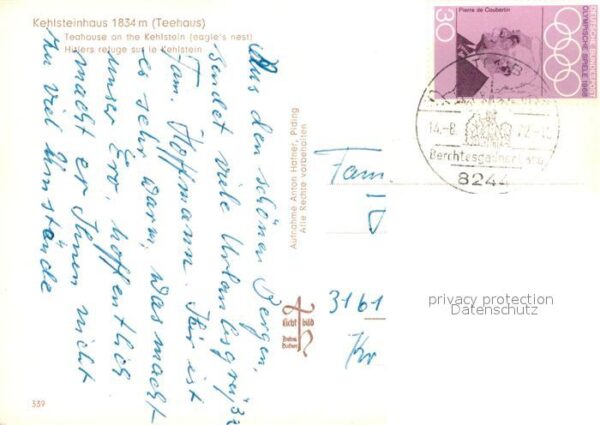 Kehlsteinhaus 1834 m (Teehaus)
Teahouse on the Kehlstein (eagle's nest)
Hitlers refuge sur le Kehlstein
Aus den schönen Bergen,
sendet viele Urlaubsgrüße
Fam. Hoffmann. Hier ist
es sehr warm, was macht
unser Ero, hoffentlich
macht er Ihnen nicht
zu viel Umstände
Aufnahme Anton Hafner, Piding
Alle Rechte vorbehalten
Pierre de Coubertin
30
DEUTSCHE BUNDESPOST
OLYMPISCHE SPIELE 1968
14.-8.
Berchtesgadener Land
8244
Fam.
3161
Kr
licht bild
privacy protection
Datenschutz
539